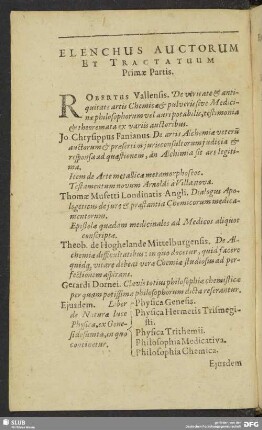 ELENCHUS AUCTORUM
ET TRACTATUUM
Primæ Partis.
ROBERTUS Vallensis. De veritate & anti-
quitate artis Chemicæ & pulveris sive Medici-
næ philosophorum vel auri potabilis, testimonia
& theoremata ex variis auctoribus.
Jo Chrysippus Fanianus De artis Alchemiæ veterũ
auctorum & præsertim jurisconsultorum judicia &
responsa ad quæstionem, An Alchemia sit ars legiti-
ma.
Item de Arte metallicæ metamorphoseos.
Testamentum novum Arnoldi à Villanova.
Thomæ Mufetti Londinatis Angli. Dialogus Apo-
logeticus de jure & præstantia Chemicorum medica-
mentorum.
Epistolæ quædam medicinales ad Medicos aliquot
conscriptæ.
Theob. de Hoghelande Mittelburgensis. De Al-
chemiæ difficultatibus: in quo docetur, quid scire
quidq, vitare debeat veræ Chemiæ studiosus ad per-
fectionem aspirans.
Gerardi Dornei. Clavis totius philosophiæ chemisticæ
per quam potissima philosophorum dicta reserantur.
Ejusdem. Liber
de Naturæ luce
Physica, ex Gene-
si desumta, in quo
continetur,
Physica Genesis.
Physica Hermetis Trismegi-
sti.
Physica Trithemii.
Philosophia Medicativa.
Philosophia Chemica.
Ejusdem
SLUB
DFG